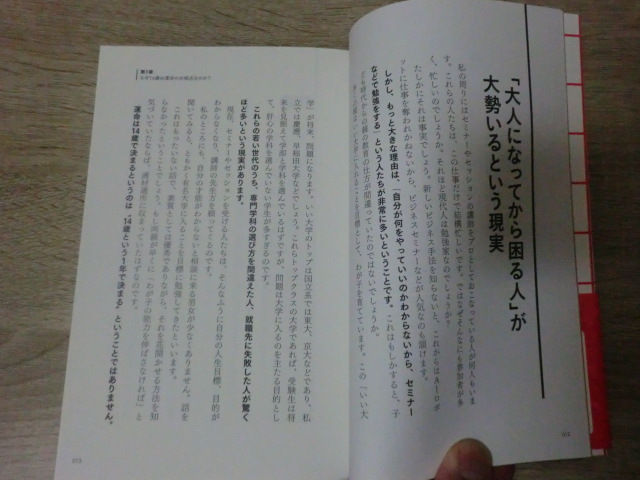 「大人になってから困る人」が
大勢いるという現実
私の周りにはセミナーやセッションの講師をプロとしておこなっている人が何人もいま
す。これらの人たちは、この仕事だけで結構忙しいです。ではなぜそんなにも参加者が多
く、忙しいのでしょうか。それほど現代人は勉強家なのでしょうか？
たしかにそれは事実でしょう。新しいビジネス手法を知らないと、これからはAIロボ
ットに仕事を奪われかねないから、ビジネスセミナーなどが人気なのも頷けます。
しかし、もっと大きな理由は、「自分が何をやっていいのかわからないから、セミナー
などで勉強をする」という人たちが非常に多いということです。これはもしかすると、子
ども時代からの親の教育の仕方が間違っていたのではないでしょうか。
ことを目標として、わが子を育てています。この「いい大
014
第1章
学」が将来、問題になります。いい大学のトップは国立系では東大、京大などであり、私
立では慶應、早稲田大学などでしょう。これらトップクラスの大学であれば、受験生は将
来を見据えて学部と学科を選んでいるはずですが、問題は大学に入るのを主たる目的とし
て、肝心の学科を選んでいない学生が多すぎるのです。
これらの若い世代のうち、専門学科の選び方を間違えた人、就職先に失敗した人が驚く
ほど多いという現実があります。
現在、セミナーやセッションを受ける人たちは、そんなふうに自分の人生目標、目的が
わからなくなり、講師の先生方を頼ってくるのです。
私のところにも、自分の才能がわからないと相談に来る男女が少なくありません。話を
聞いてみると、ともかく有名大学に入ることを目標に勉強してきたといいます。
これはもったいない話で、素質としては優秀でありながら、それを花開かせる方法を知
らなかったということでしょう。もし両親が早くに「わが子の能力を伸ばさなければ」と
気づいていたならば、適材適所に収まっていたはずなのです。
運命は14歳で決まるというのは、“14歳という1年で決まる”ということではありません。
015